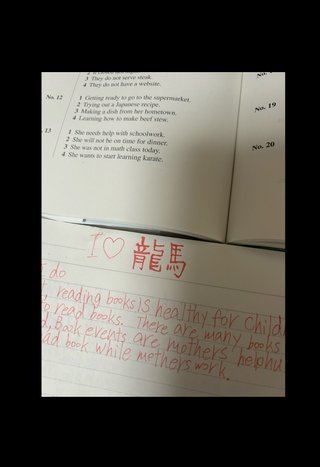 3 They do not serve steak.
4 They do not have a website.
No. 12
1 Getting ready to go to the supermarket.
2 Trying out a Japanese recipe.
3 Making a dish from her hometown.
4 Learning how to make beef stew.
13
1 She needs help with schoolwork.
2 She will not be on time for dinner.
3 She was not in math class today.
4 She wants to start learning karate.
No. 19
No. 20
I♡龍馬
do
reading books is healthy for child
to read books. There are many books
d, Book events are mothers helpful
ad book while methers work.